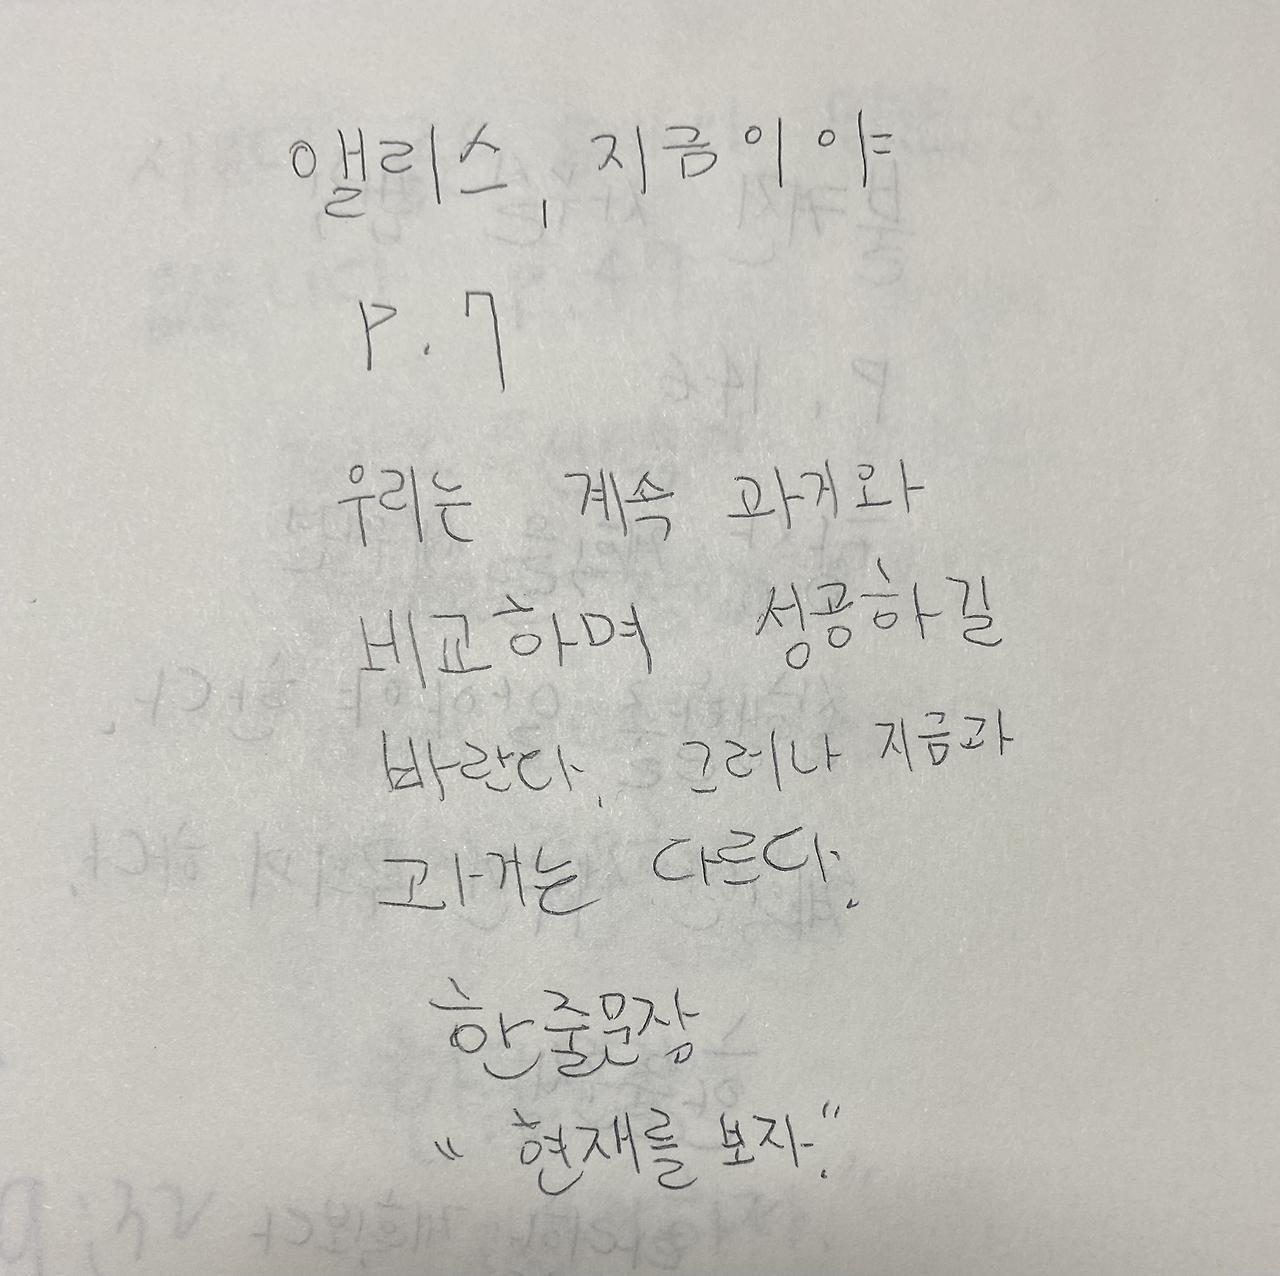 앨리스, 지금이야
P. 7
우리는 계속 과거와
비교하며 성공하길
바란다. 그러나 지금과
과거는 다르다.
한줄문장
“ 현재를 보자.”